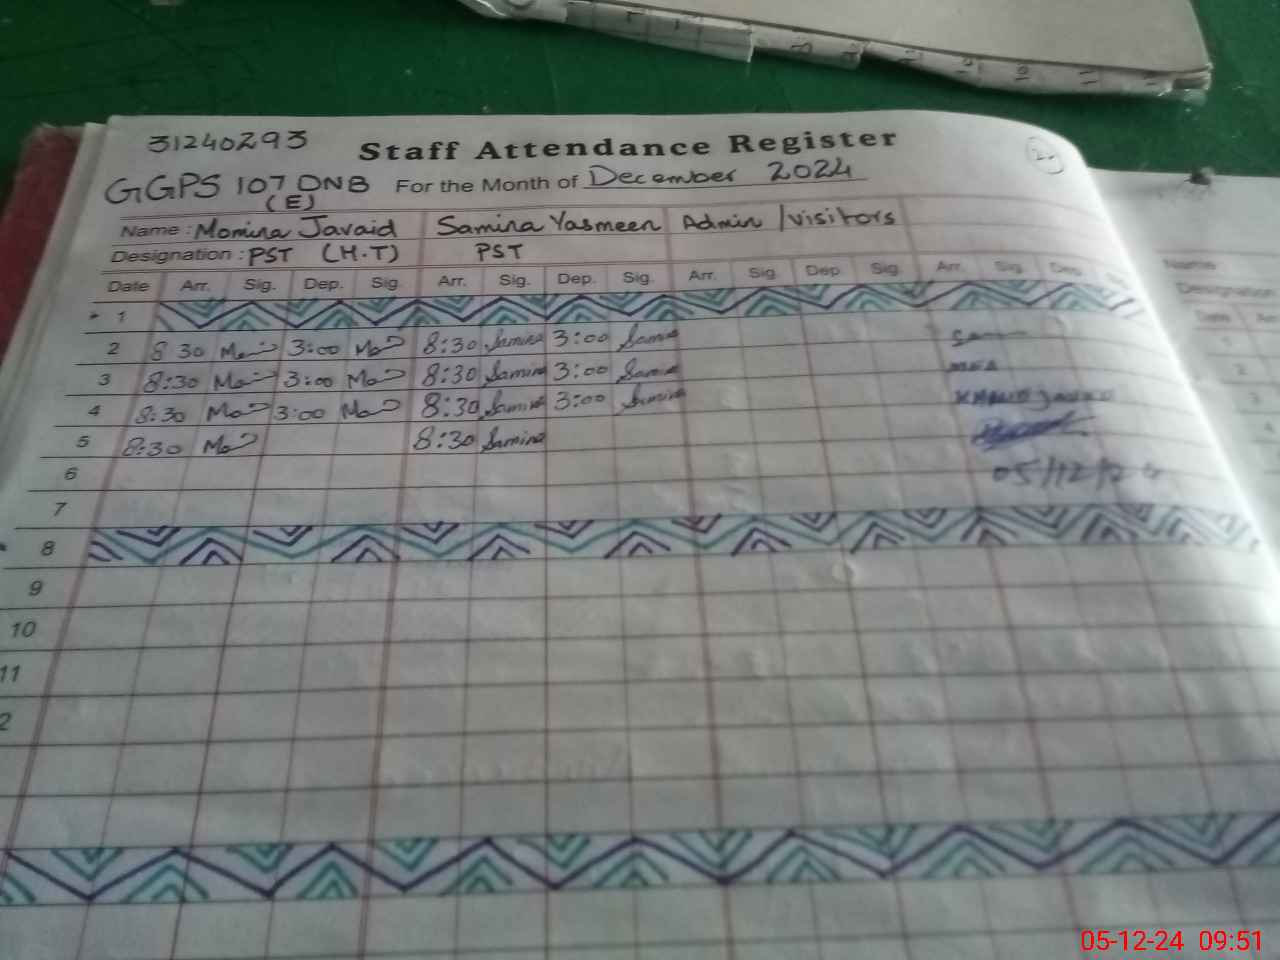 31240293
Staff Attendance Register
GGPS 107 DNB For the Month of December 2024
(E)
Name : Momina Javaid Samina Yasmeen Admin / visitors
Designation : PST (H.T) PST
Date Arr. Sig. Dep. Sig. Arr. Sig. Dep. Sig. Arr. Sig. Dep Sig. Arr. Sig. Dep.
1
2 8 30 3:00 8:30 Samina 3:00 Samina
3 8:30 3:00 8:30 Samina 3:00 Samina
4 8:30 3:00 8:30 Samina 3:00 Samina
5 8:30 8:30 Samina
05/12/24
6
7
8
9
10
11
2
Name
Designation
Date
1
2
3
4
10
11
05-12-24 09:51